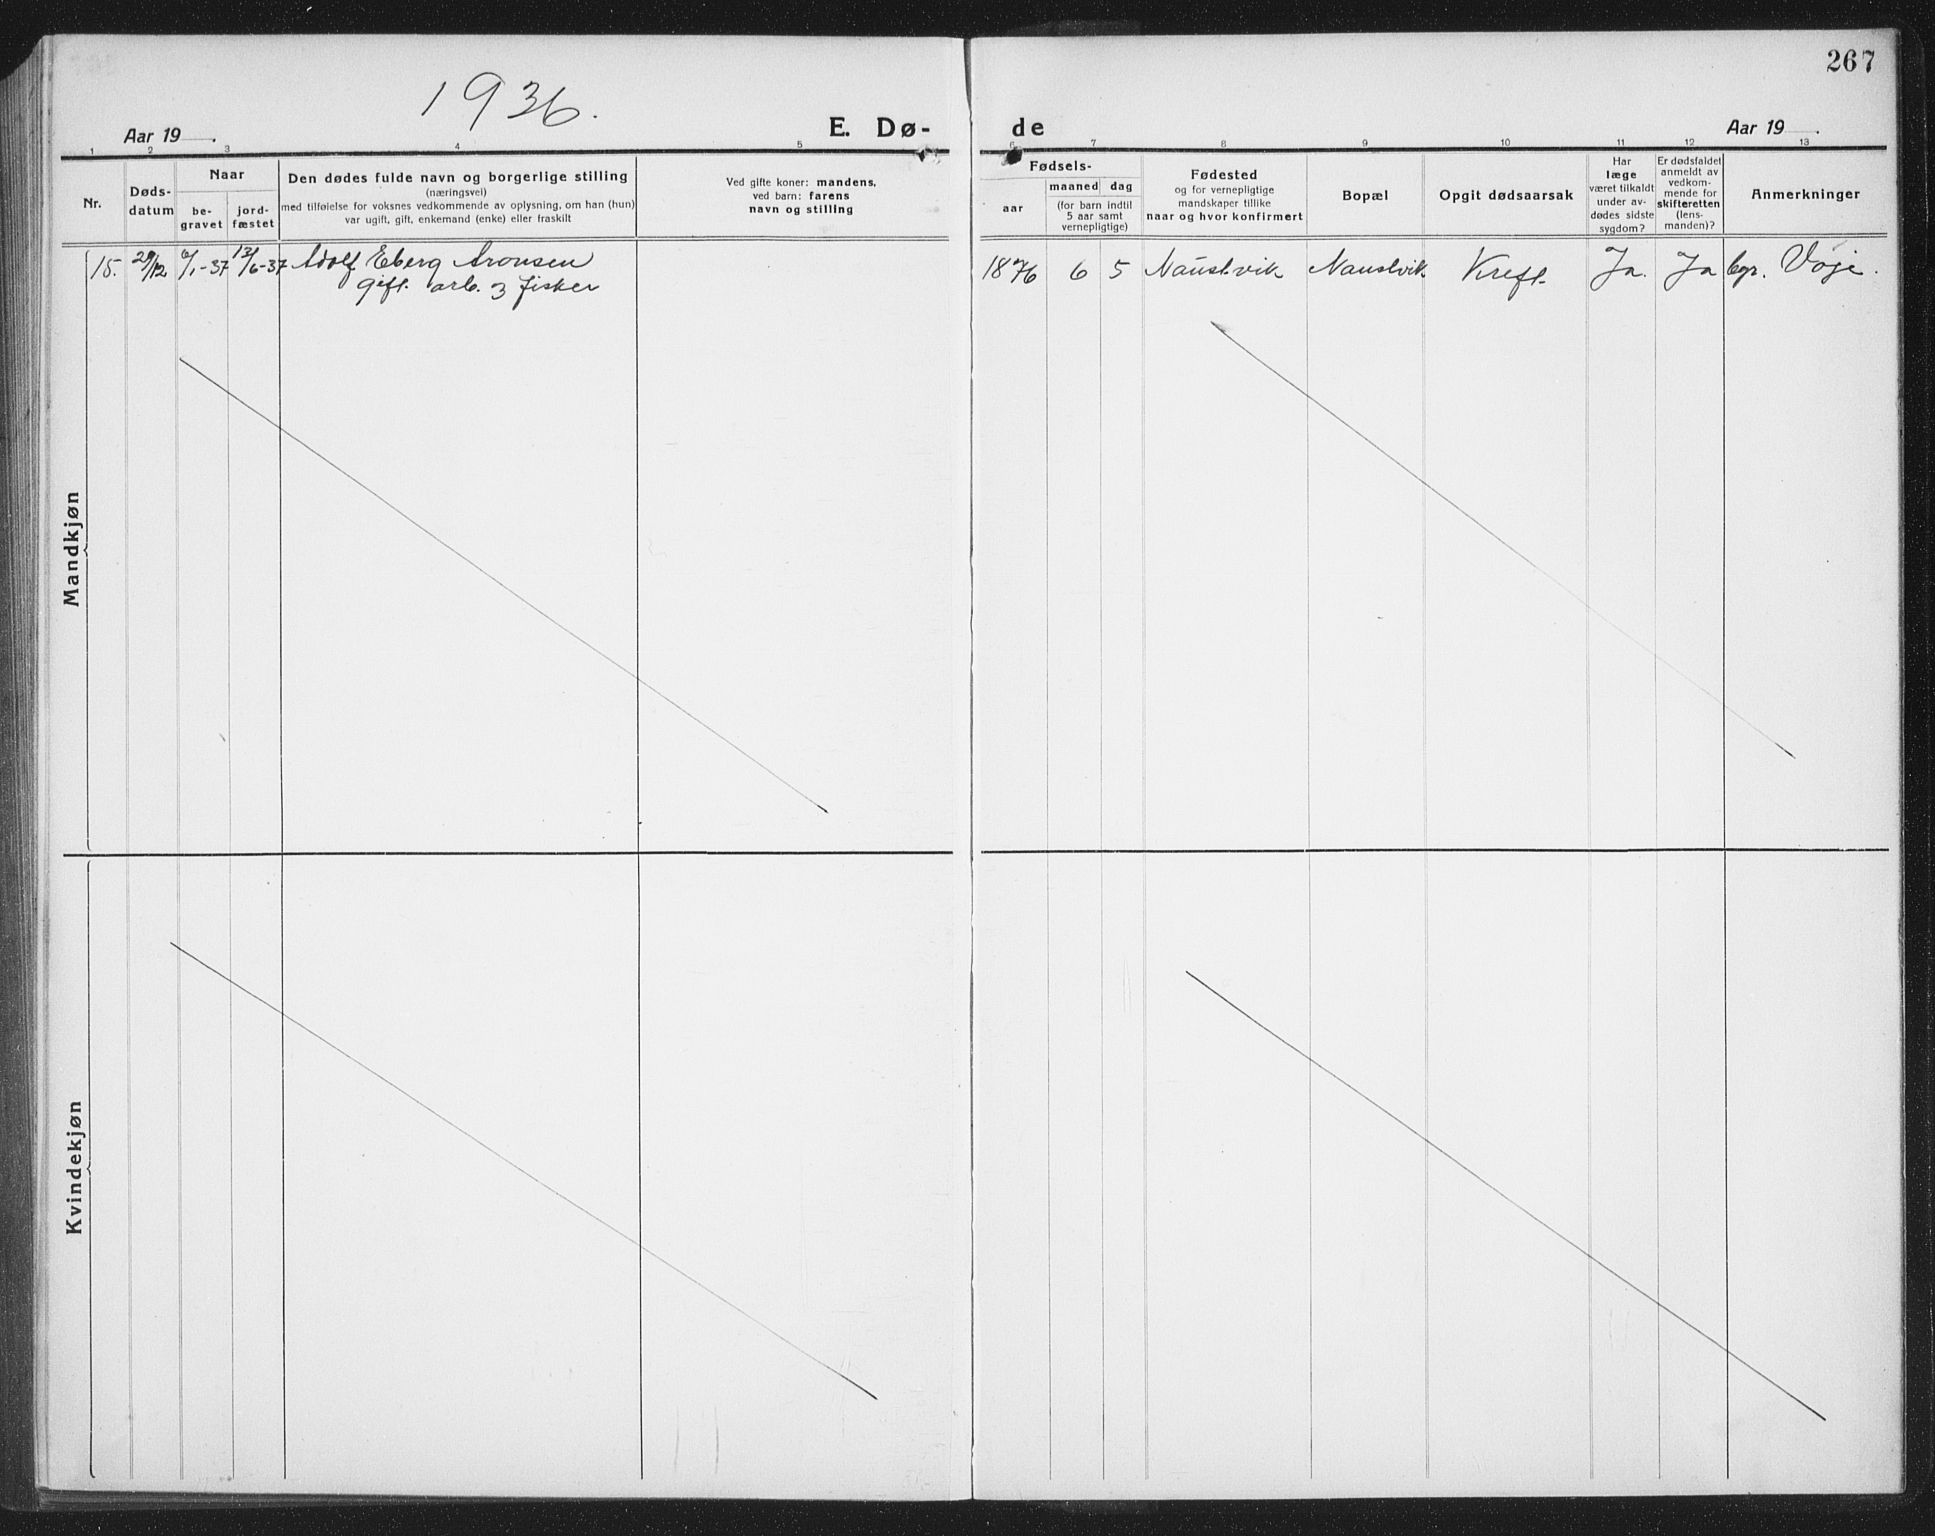 1936.
Aar 19 .
E. Dø-
1 2 3 4 5
Nr.
Døds-
datum
Naar
be-
gravet
jord-
fæstet
Den dødes fulde navn og borgerlige stilling
(næringsvei)
med tilføielse for voksnes vedkommende av oplysning, om han (hun)
var ugift, gift, enkemand (enke) eller fraskilt
Ved gifte koner: mandens,
ved barn: farens
navn og stilling
15. 29/12 6/1-37 13/6-37 Adolf Eberg Aronsen
gift. arb. og fisker
Mandkjøn
Kvindekjøn
267
de
Aar 19 .
6 7 8 9 10 11 12 13
Fødsels-
aar
maaned dag
(for barn indtil
5 aar samt
vernepligtige)
Fødested
og for vernepligtige
mandskaper tillike
naar og hvor konfirmert
Bopæl
Opgit dødsaarsak
Har
læge
været tilkaldt
under av-
dødes sidste
sygdom?
Er dødsfaldet
anmeldt av
vedkom-
mende for
skifteretten
(lens-
manden)?
Anmerkninger
1876 6 5 Naustvik Naustvik Kreft. Ja. Ja bgr. Voje.